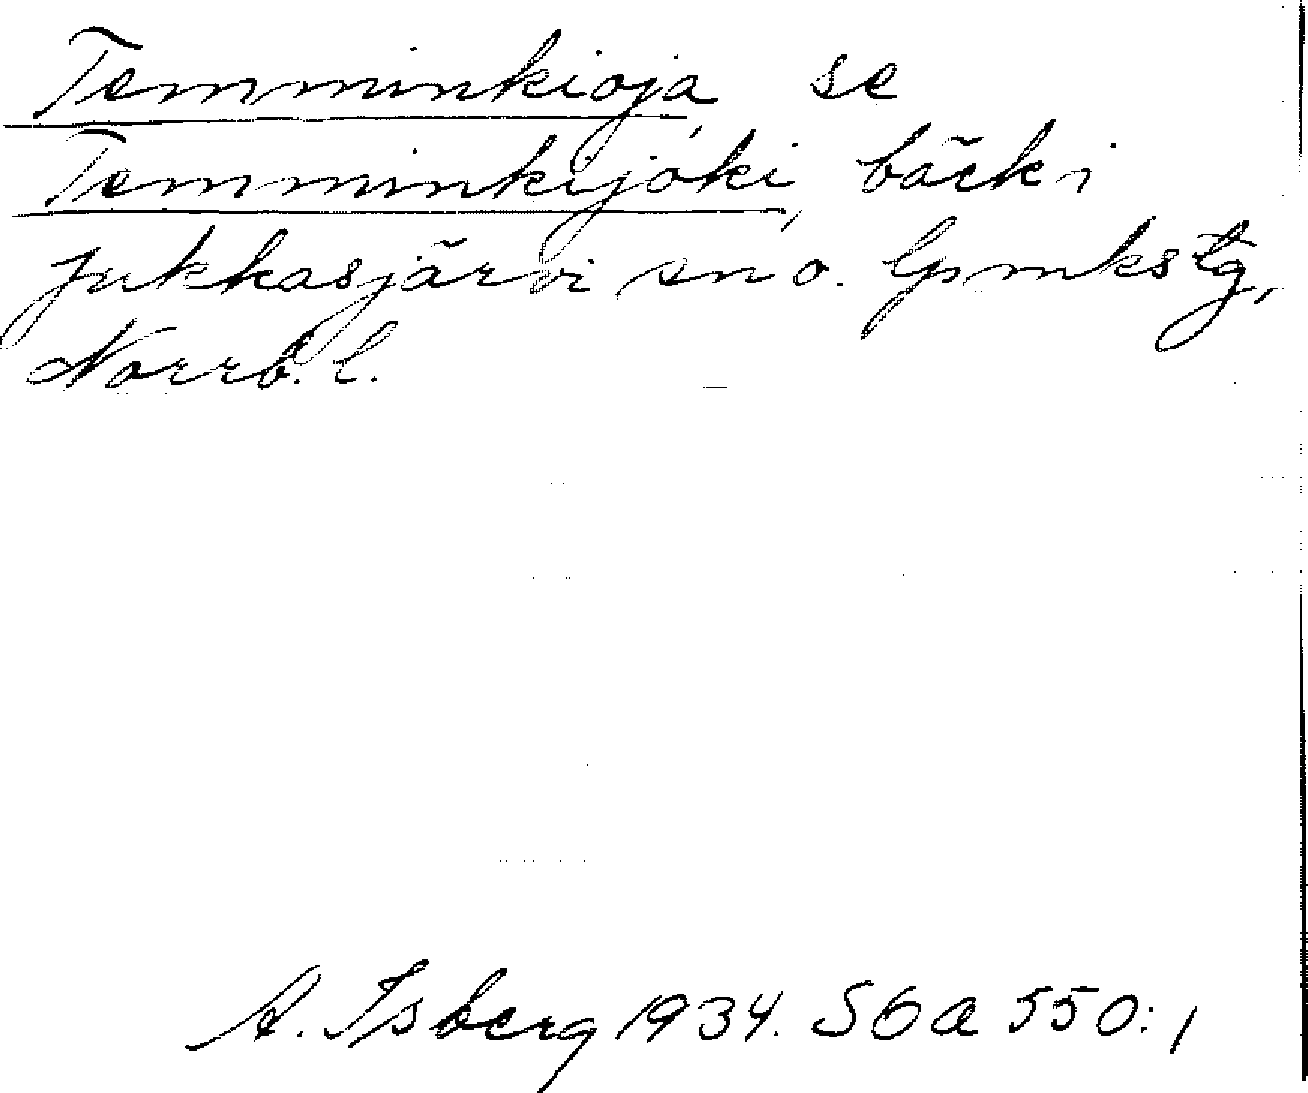 Temminkioja se
Temminkijoki, bäck i
Jukkasjärvi sn o. lpmkstg,
Norrb. l.
A. Isberg 1934. S6a 550:1